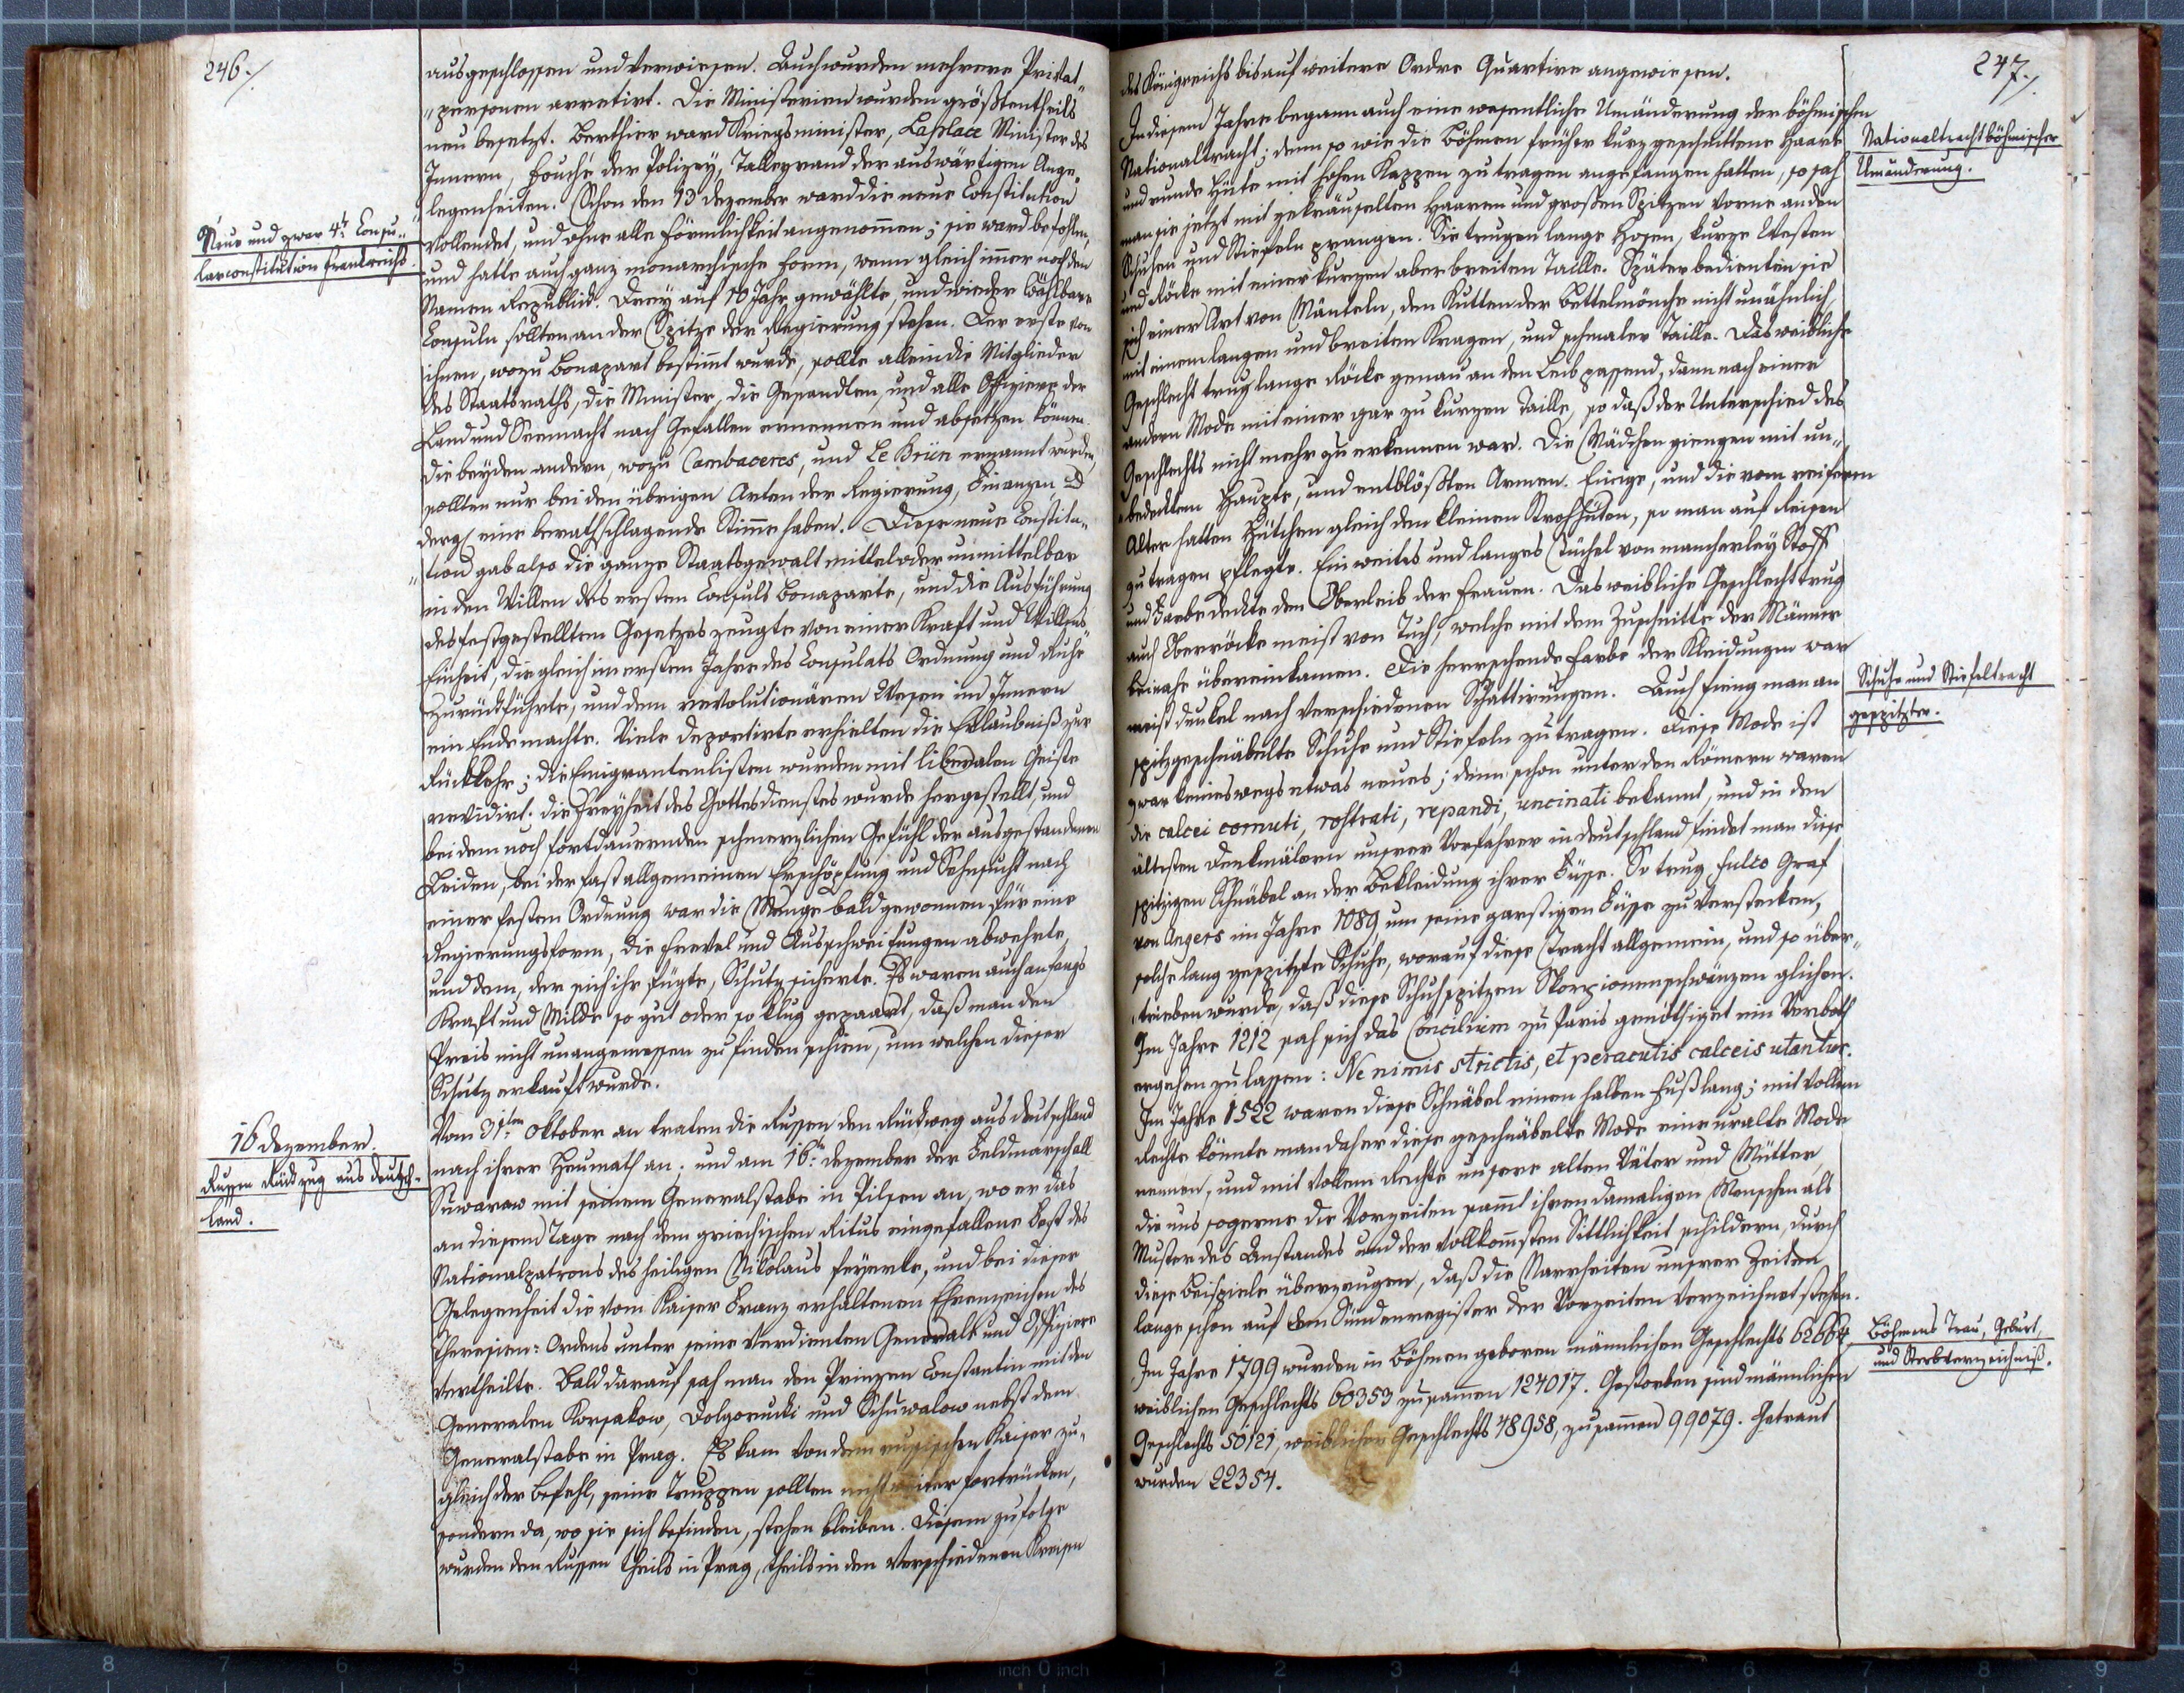 246./.
ausgeschlossen und verwiesen. Auch wurden mehrere Privat"
"personen arretirt. Die Ministerien wurden größtentheils
neu besetzt. Berthier ward Kriegsminister, Laplace Minister des
Innern, Fouché der Polizey, Talleyrand der auswärtigen Ange„
legenheiten. Schon den 13 Dezember ward die neue Constitution
Neue und zwar 4te Consu„
larconstitution Frankreichs.
vollendet, und ohne alle Förmlichkeit angenommen; sie ward befohlen,
und hatte auch ganz monarchische Form, wenn gleich immer noch den
Namen Republick. Drey auf 10 Jahr gewählte, und wieder wählbare
Consuln sollten an der Spitze der Regierung stehen. Der erste von
ihnen, wozu Bonapart bestimt wurde, sollte allein die Mitglieder
des Staatsraths, die Minister, die Gesandten, und alle Offiziere der
Land und Seemacht nach Gefallen ernennen und absetzen können.
die beyden andern, wozu Cambaceres, und Le Brün ernannt wurden,
sollten nur bei den übrigen Acten der Regierung, Finanzen
dergl eine berathschlagende Stimme haben. Diese neue Constitu„
"tion gab also die ganze Staatsgewalt mittel oder unmittelbar
in den Willen des ersten Consuls Bonaparte, und die Ausführung
des festgestellten Gesetzes zeugte von einer Kraft und Willens"
Einheit, die gleich im ersten Jahre des Consulats Ordnung und Ruhe
zurückführte, und dem revolutionären Wesen im Innern
ein Ende machte. Viele Deportirte erhielten die Erlaubniß zur
Rückkehr; die Emigrantenlisten wurden mit liberalen Geiste
revidirt. die Freyheit des Gottesdienstes wurde hergestellt, und
bei dem noch fortdauernden schmerzlichen Gefühl der ausgestandenen
Leiden, bei der fast allgemeinen Erschöpfung und Sehnsucht nach
einer festen Ordnung war die Menge bald gewonnen für eine
Regierungsform, die Frevel und Ausschweifungen abwehrte,
und dem, der sich ihr fügte, Schutz sicherte. Es waren auch anfangs
Kraft und Milde so gut oder so klug gepaart, daß man den
Preis nicht unangemessen zu finden schien, um welchen dieser
Schutz erkauft wurde.
Vom 31ten Oktober an traten die Russen den Rückweg aus Deutschland
16 Dezember.
Russen Rückzug aus Deutsch-
land.
nach ihrer Heumath an. und am 16t: Dezember der Feldmarschall
Suwaraw mit seinem Generalstabe in Pilsen an, wo er das
an diesem Tage nach dem griechischen Ritus eingefallene Fest des
Nationalpatrons des heiligen Nikolaus feyerte, und bei dieser
Gelegenheit die vom Kaiser Franz erhaltenen Ehrenzeichen des
Theresien: Ordens unter seine verdienten Generals und Offiziere
vertheilte. Bald darauf sah man den Prinzen Constantin mit den
Generalen Korsakow, Dolgorucki und Schuwalow nebst dem
Generalstabe in Prag. Es kam von dem russischen Kaiser zu„
gleich der Befehl, seine Truppen sollten nicht weiter fortrücken,
sondern da, wo sie sich befinden, stehen bleiben. Diesem zufolge
wurden den Russen theils in Prag, theils in den verschiedenen Kreisen
247./.
des Königreichs bis auf weitere Ordre Quartire angewiesen.
In diesem Jahre begann auch eine wesentliche Umänderung der böhmischen
Nationaltracht böhmischer
Umänderung.
Nationaltracht; denn so wie die Böhmen früher kurz geschnittene Haare
und runde Hüte mit hohen Kappen zu tragen angefangen hatten, so sah
man sie jetzt mit gekräuselten Haaren und großen Spitzen vorne an den
Schuhen und Stiefeln prangen. Sie trugen lange Hosen, kurze Westen
und Röcke mit einer kurzen aber breiten Taille. Später bedienten sie
sich einer Art von Mänteln, den Kutten der Bettelmönche nicht unähnlich,
mit einem langen und breiten Kragen, und schmaler Taille. Das weibliche
Geschlecht trug lange Röcke genau an den Leib passend, dann nach einer
andern Mode mit einer gar zu kurzen Taille, so daß der Unterschied des
Geschlechts nicht mehr zu erkennen war. Die Mädchen giengen mit un„
bedektem Haupte, und entblößten Armen. Einige, und die vom reiferen
Alter hatten Hütchen gleich den kleinen Strohhüten, so man auf Reisen
zu tragen pflegte. Ein weites und langes Tüchel von mancherley Stoff
und Farbe deckte den Oberleib der Frauen. Das weibliche Geschlecht trug
auch Oberröcke meist von Tuch, welche mit dem Zuschnitte der Männer
beinahe übereinkamen. Die herrschende Farbe der Kleidungen war
meist dunkel nach verschiedenen Schattirungen. Auch fieng man an
Schuhe und Stiefeltracht
gespitzter.
spitzgeschnäbelte Schuhe und Stiefeln zu tragen. Diese Mode ist
zwar keineswegs etwas neues; denn schon unter den Römern waren
die calcei cornuti, rostrati, repandi, uncinati bekannt, und in den
ältesten Denkmälern unsrer Vorfahrer in Deutschland findet man diese
spitzigen Schnäbel an der Bekleidung ihrer Füsse. So trug Fulco Graf
von Angers im Jahre 1089 um seine garstigen Füsse zu verstecken,
solche lang gespitzte Schuhe, worauf diese Tracht allgemein, und so über„
trieben wurde, daß diese Schuhspitzen Skorpionenschwänzen glichen.
Im Jahre 1212 sah sich das Concilium zu Paris genöthiget ein Verboth
ergehen zu lassen: Ne nimis strictis, et peracutis calceis utantur.
Im Jahre 1522 waren diese Schnäbel einen halben Fuß lang; mit vollem
Rechte könnte man daher diese geschnäbelte Mode eine uralte Mode
nennen, und mit vollem Rechte unsere alten Väter und Mütter,
die uns so gerne die Vorzeiten sammt ihren damaligen Menschen als
Muster des Anstandes und der vollkommsten Sittlichkeit schildern, durch
diese Beispiele überzeugen, daß die Narrheiten unsrer Zeiten
lange schon auf dem Sündenregister der Vorzeiten verzeichnet stehen.
Im Jahre 1799 wurden in Böhmen geboren männlichen Geschlechts 62664,
Böhmens Trau, Geburt,
und Sterbverzeichniß.
weiblichen Geschlechts 60353 zusammen 124017. Gestorben sind männlichen
Geschlechts 50121, weiblichen Geschlechts 48958, zusammen 99079. Getraut
wurden 22354.